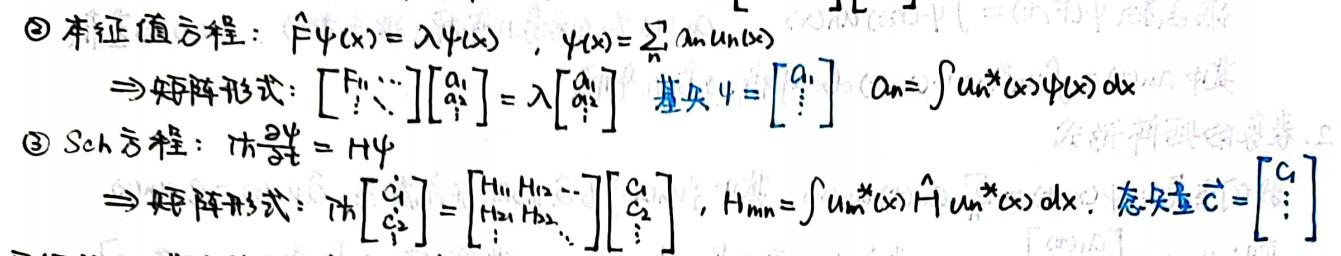 ② 本征值方程: F̂ψ(x) = λψ(x) , ψ(x) = ∑ₙ aₙuₙ(x)
⇒ 矩阵形式: [F₁₁ ⋯ ; ⋮ ⋱][a₁ ; a₂ ; ⋮] = λ[a₁ ; a₂ ; ⋮] 基矢 ψ = [a₁ ; ⋮] aₙ = ∫uₙ*(x)ψ(x)dx
③ Sch方程: iħ ∂ψ/∂t = Hψ
⇒ 矩阵形式: iħ[ċ₁ ; ċ₂ ; ⋮] = [H₁₁ H₁₂ ⋯ ; H₂₁ H₂₂ ; ⋮ ⋱][c₁ ; c₂ ; ⋮] , Hₘₙ = ∫uₘ*(x)Ĥuₙ*(x)dx. 态矢量 c⃗ = [c₁ ; ⋮]